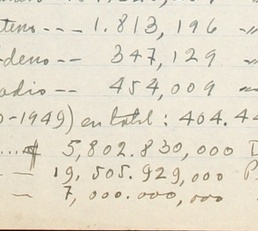 teno --- 1.813,196 -"
deno -- 347,129 -"
adio -- 454,009 "
0-1949) en total: 404.4
.... $ 5,802.830,000
— 19,505.929,000 P
— 7,000.000,000